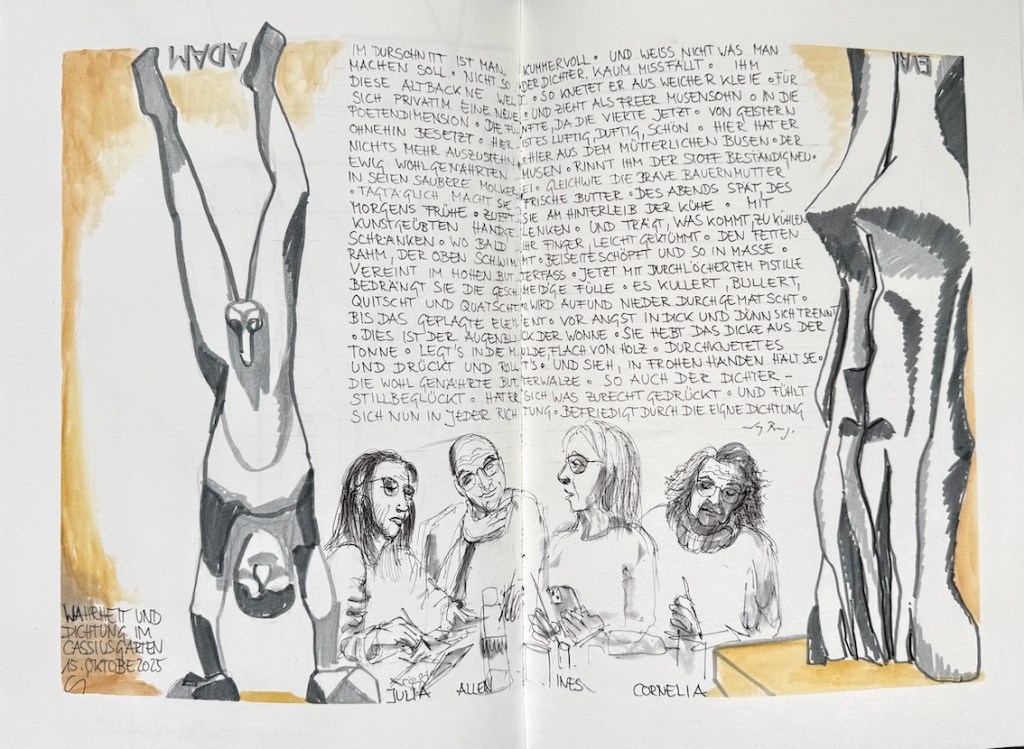 ADAM
EVA
IM DURSCHNITT IST MAN KUMMERVOLL • UND WEISS NICHT WAS MAN
MACHEN SOLL • NICHT SO DER DICHTER, KAUM MISSFALLT • IHM
DIESE ALTBACKNE WELT • SO KNETET ER AUS WEICHER KLEIE • FÜR
SICH PRIVATIM EINE NEUE • UND ZIEHT ALS FREER MUSENSOHN • IN DIE
POETENDIMENSION • DIE FÜNFTE, DA DIE VIERTE JETZT • VON GEISTERN
OHNEHIN BESETZT • HIER IST ES LUFTIG, DUFTIG, SCHÖN • HIER HAT ER
NICHTS MEHR AUSZUSTEHN • HIER AUS DEM MÜTTERLICHEN BUSEN • DER
EWIG WOHLGENÄHRTEN MUSEN • RINNT IHM DER STOFF BESTÄNDIG NEU •
IN SEIEN SAUBERE MOLKEREI • GLEICHWIE DIE BRAVE BAUERNMUTTER
• TAGTÄGLICH MACHT SIE FRISCHE BUTTER • DES ABENDS SPÄT, DES
MORGENS FRÜHE • ZUPFT SIE AM HINTERLEIB DER KÜHE • MIT
KUNSTGEÜBTEN HANDGELENKEN • UND TRÄGT, WAS KOMMT ZU KÜHLEN
SCHRÄNKEN • WO BALD IHR FINGER, LEICHT GEKRÜMMT • DEN FETTEN
RAHM, DER OBEN SCHWIMMT • BEISEITESCHÖPFT UND SO IN MASSE •
VEREINT IM HOHEN BUTTERFASS • JETZT MIT DURCHLÖCHERTEM PISTILLE
BEDRÄNGT SIE DIE GESCHMEIDGE FÜLLE • ES KULLERT, BULLERT,
QUITSCHT UND QUATSCHT • WIRD AUF UND NIEDER DURCHGEMATSCHT •
BIS DAS GEPLAGTE ELEMENT • VOR ANGST IN DICK UND DÜNN SICH TRENNT
• DIES IST DER AUGENBLICK DER WONNE • SIE HEBT DAS DICKE AUS DER
TONNE • LEGT'S IN DIE MULDE, FLACH VON HOLZ • DURCHKNETET ES
UND DRÜCKT UND ROLLT'S • UND SIEH, IN FROHEN HÄNDEN HÄLT SE •
DIE WOHL GENÄHRTE BUTTERWALZE • SO AUCH DER DICHTER –
STILLBEGLÜCKT • HAT ER SICH WAS ZURECHT GEDRÜCKT • UND FÜHLT
SICH NUN IN JEDER RICHTUNG • BEFRIEDIGT DURCH DIE EIGNE DICHTUNG
WAHRHEIT UND
DICHTUNG IM
CASSIUSGARTEN
15. OKTOBE 2025
JULIA
ALLEN
INES
CORNELIA